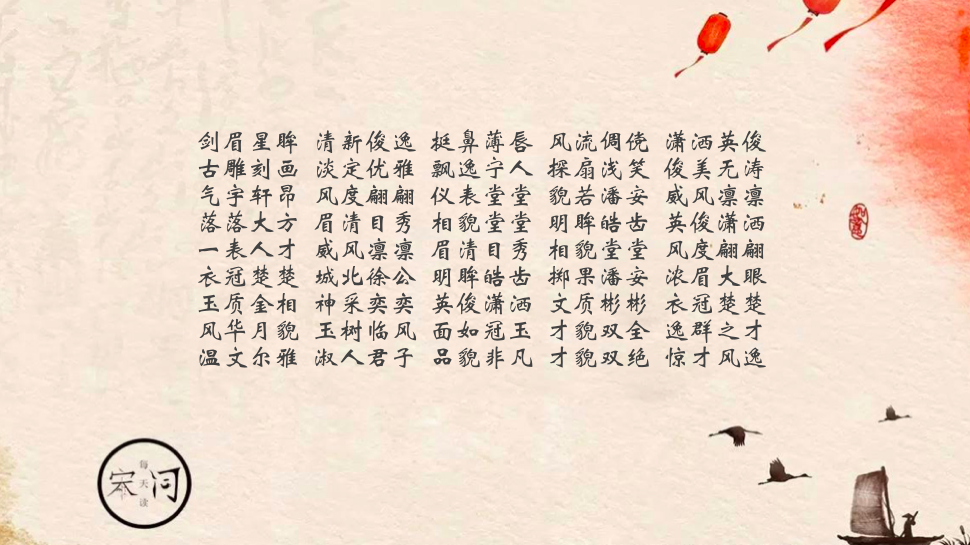 剑眉星眸 清新俊逸 挺鼻薄唇 风流倜傥 潇洒英俊
古雕刻画 淡定优雅 飘逸宁人 探扇浅笑 俊美无涛
气宇轩昂 风度翩翩 仪表堂堂 貌若潘安 威风凛凛
落落大方 眉清目秀 相貌堂堂 明眸皓齿 英俊潇洒
一表人才 威风凛凛 眉清目秀 相貌堂堂 风度翩翩
衣冠楚楚 城北徐公 明眸皓齿 掷果潘安 浓眉大眼
玉质金相 神采奕奕 英俊潇洒 文质彬彬 衣冠楚楚
风华月貌 玉树临风 面如冠玉 才貌双全 逸群之才
温文尔雅 淑人君子 品貌非凡 才貌双绝 惊才风逸
宋词
每天读